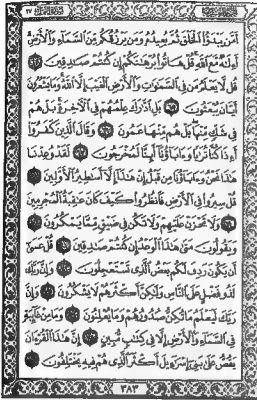 أَمَّن يَبْدَؤُا۟ ٱلْخَلْقَ ثُمَّ يُعِيدُهُۥ وَمَن يَرْزُقُكُم مِّنَ ٱلسَّمَآءِ وَٱلْأَرْضِ
أَءِلَٰهٌ مَّعَ ٱللَّهِ قُلْ هَاتُوا۟ بُرْهَٰنَكُمْ إِن كُنتُمْ صَٰدِقِينَ ٦٤
قُل لَّا يَعْلَمُ مَن فِى ٱلسَّمَٰوَٰتِ وَٱلْأَرْضِ ٱلْغَيْبَ إِلَّا ٱللَّهُ وَمَا يَشْعُرُونَ
أَيَّانَ يُبْعَثُونَ ٦٥ بَلِ ٱدَّٰرَكَ عِلْمُهُمْ فِى ٱلْءَاخِرَةِ بَلْ هُمْ
فِى شَكٍّ مِّنْهَا بَلْ هُم مِّنْهَا عَمُونَ ٦٦ وَقَالَ ٱلَّذِينَ كَفَرُوٓا۟
أَءِذَا كُنَّا تُرَٰبًا وَءَابَآؤُنَآ أَئِنَّا لَمُخْرَجُونَ ٦٧ لَقَدْ وُعِدْنَا
هَٰذَا نَحْنُ وَءَابَآؤُنَا مِن قَبْلُ إِنْ هَٰذَآ إِلَّآ أَسَٰطِيرُ ٱلْأَوَّلِينَ ٦٨
قُلْ سِيرُوا۟ فِى ٱلْأَرْضِ فَٱنظُرُوا۟ كَيْفَ كَانَ عَٰقِبَةُ ٱلْمُجْرِمِينَ
٦٩ وَلَا تَحْزَنْ عَلَيْهِمْ وَلَا تَكُن فِى ضَيْقٍ مِّمَّا يَمْكُرُونَ ٧٠
وَيَقُولُونَ مَتَىٰ هَٰذَا ٱلْوَعْدُ إِن كُنتُمْ صَٰدِقِينَ ٧١ قُلْ عَسَىٰٓ
أَن يَكُونَ رَدِفَ لَكُم بَعْضُ ٱلَّذِى تَسْتَعْجِلُونَ ٧٢ وَإِنَّ رَبَّكَ
لَذُو فَضْلٍ عَلَى ٱلنَّاسِ وَلَٰكِنَّ أَكْثَرَهُمْ لَا يَشْكُرُونَ ٧٣ وَإِنَّ
رَبَّكَ لَيَعْلَمُ مَا تُكِنُّ صُدُورُهُمْ وَمَا يُعْلِنُونَ ٧٤ وَمَا مِنْ غَآئِبَةٍ
فِى ٱلسَّمَآءِ وَٱلْأَرْضِ إِلَّا فِى كِتَٰبٍ مُّبِينٍ ٧٥ إِنَّ هَٰذَا ٱلْقُرْءَانَ
يَقُصُّ عَلَىٰ بَنِىٓ إِسْرَٰٓءِيلَ أَكْثَرَ ٱلَّذِى هُمْ فِيهِ يَخْتَلِفُونَ ٧٦
٣٨٣